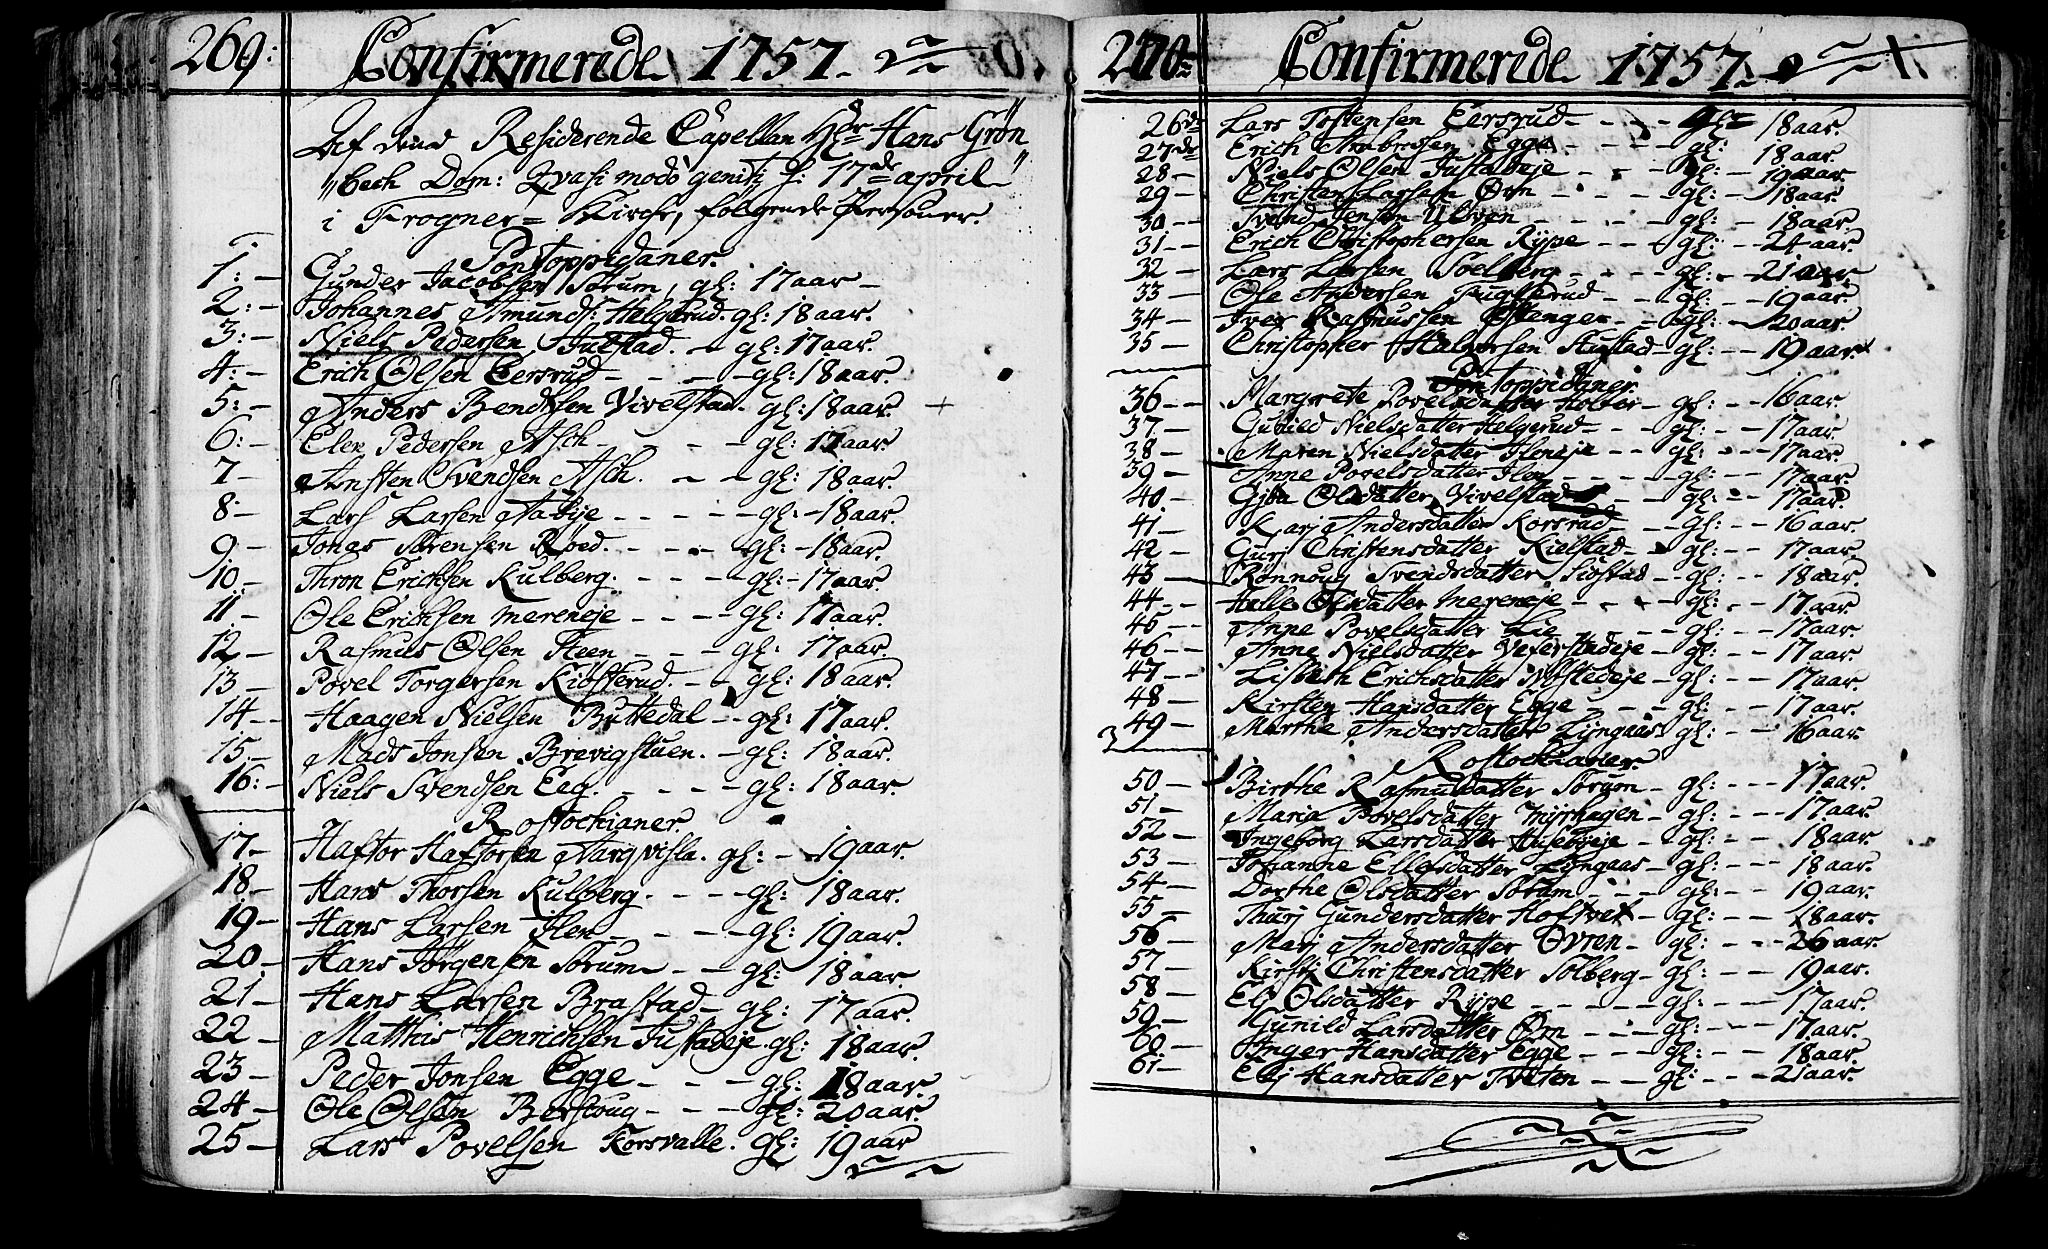 269: Confirmerede 1757.
Af dend Residerende Capellan Hr: Hans Grøn
bech Dom: Qvasi modo geniti d: 17de april
i Frogner Kirche, følgende Personer.
Pontoppidaner.
1: Gunder Jacobsen Sørum, gl: 17 aar
2: Johannes Amunds: Helgerud. gl: 18 aar.
3: Niels Pedersen Julstad. gl: 17 aar.
4: Erich Olsen Eersrud gl: 18 aar.
5: Anders Bendtsen Vivelstad. gl: 18 aar.
6: Elen Pedersen Asch gl: 17 aar.
7 Ansten Svendsen Asch. gl: 18 aar.
8 Lars Larsen gl: 18 aar.
9 Jonas Sørensen Roed. gl: 18 aar.
10 Thron Erichsen Kulberg. gl: 17 aar
11 Ole Erichsen mereneje gl: 17 aar.
12 Rasmus Olsen Heen gl: 17 aar.
13 Povel Torgersen Kiosterud gl: 18 aar.
14 Haagen Nielsen Buttedal gl: 17 aar.
15 Mads Jonsen Brevigstuen. gl: 18 aar.
16: Niels Svendsen Eeg. gl: 18 aar.
Rostochianer.
17 Haftor Haftorsen gl: 19 aar.
18 Hans Thorsen Kulberg. gl: 18 aar.
19 Hans Larsen Hen gl: 19 aar.
20 Hans Jørgensen Sørum gl: 18 aar.
21 Hans Larsen Brastad gl: 17 aar.
22 Matthis Henrichsen Justadeje. gl: 18 aar.
23 Peder Jonsen Egge gl: 18 aar.
24 Ole Olsen gl: 20 aar.
25 Lars Povelsen Forsvalle. gl: 19 aar
270 Confirmerede 1757.
26de Lars Tostensen Eersrud gl: 18 aar.
27de Erich Ambrosen Egge gl: 18 aar.
28 Niels Olsen Justadeje gl: 19 aar.
29 Christen Larsen Ørn gl: 18 aar.
30 Svend Jensen Ulven gl: 18 aar.
31 Erich Christophersen Rype gl: 24 aar.
32 Lars Larsen Soelberg gl: 21 aar
33 Ole Andersen Fuglerud gl: 19 aar.
34 Iver Rasmussen Østengen gl: 20 aar.
35 Christopher Halvorsen Hustad gl: 19 aar.
Pontoppidaner
36 Margrete Povelsdatter Holter gl: 16 aar.
37 Gunild Nielsdatter Helgerud gl: 17 aar.
38 Maren Nielsdatter gl: 17 aar.
39 Anne Povelsdatter Hen gl: 17 aar.
40. Olsdatter Vivelstad gl: 17 aar
41 Kari Andersdatter Korsrud gl: 16 aar.
42 Gurj Christensdatter Kielstad gl: 17 aar.
43 Rønnoug Svendsdatter Siostad gl: 18 aar.
44 Helle Olsdatter mereneje gl: 17 aar
45 Anne Povelsdatter Lie gl: 17 aar.
46 Anne Nielsdatter gl: 17 aar.
47 Lisbeth Erichsdatter gl: 17 aar.
48 Kirsten Hansdatter Egge gl: 17 aar.
49 Marthe Andersdatter Lyngaas gl: 16 aar.
Rostochianer.
50 Birthe Rasmusdatter Sørum gl: 17 aar.
51 Maria Povelsdatter Myrhagen gl: 17 aar.
52 Ingeborg Larsdatter Huseby eje gl: 18 aar.
53 Johanne Ellefsdatter Lyngaas gl: 18 aar.
54 Dorthe Olsdatter Sørum gl: 19 aar.
55 Thurj Gundersdatter Hoftvet gl: 18 aar.
56 Marj Andersdatter Øvren gl: 26 aar.
57 Kirstj Christensdatter Solberg gl: 19 aar.
58 Elj Olsdatter Rype gl: 17 aar.
59 Gunild Larsdatter Ørn gl: 17 aar.
60 Inger Hansdatter Egge gl: 18 aar.
61 Elj Hansdatter Tveten gl: 21 aar.